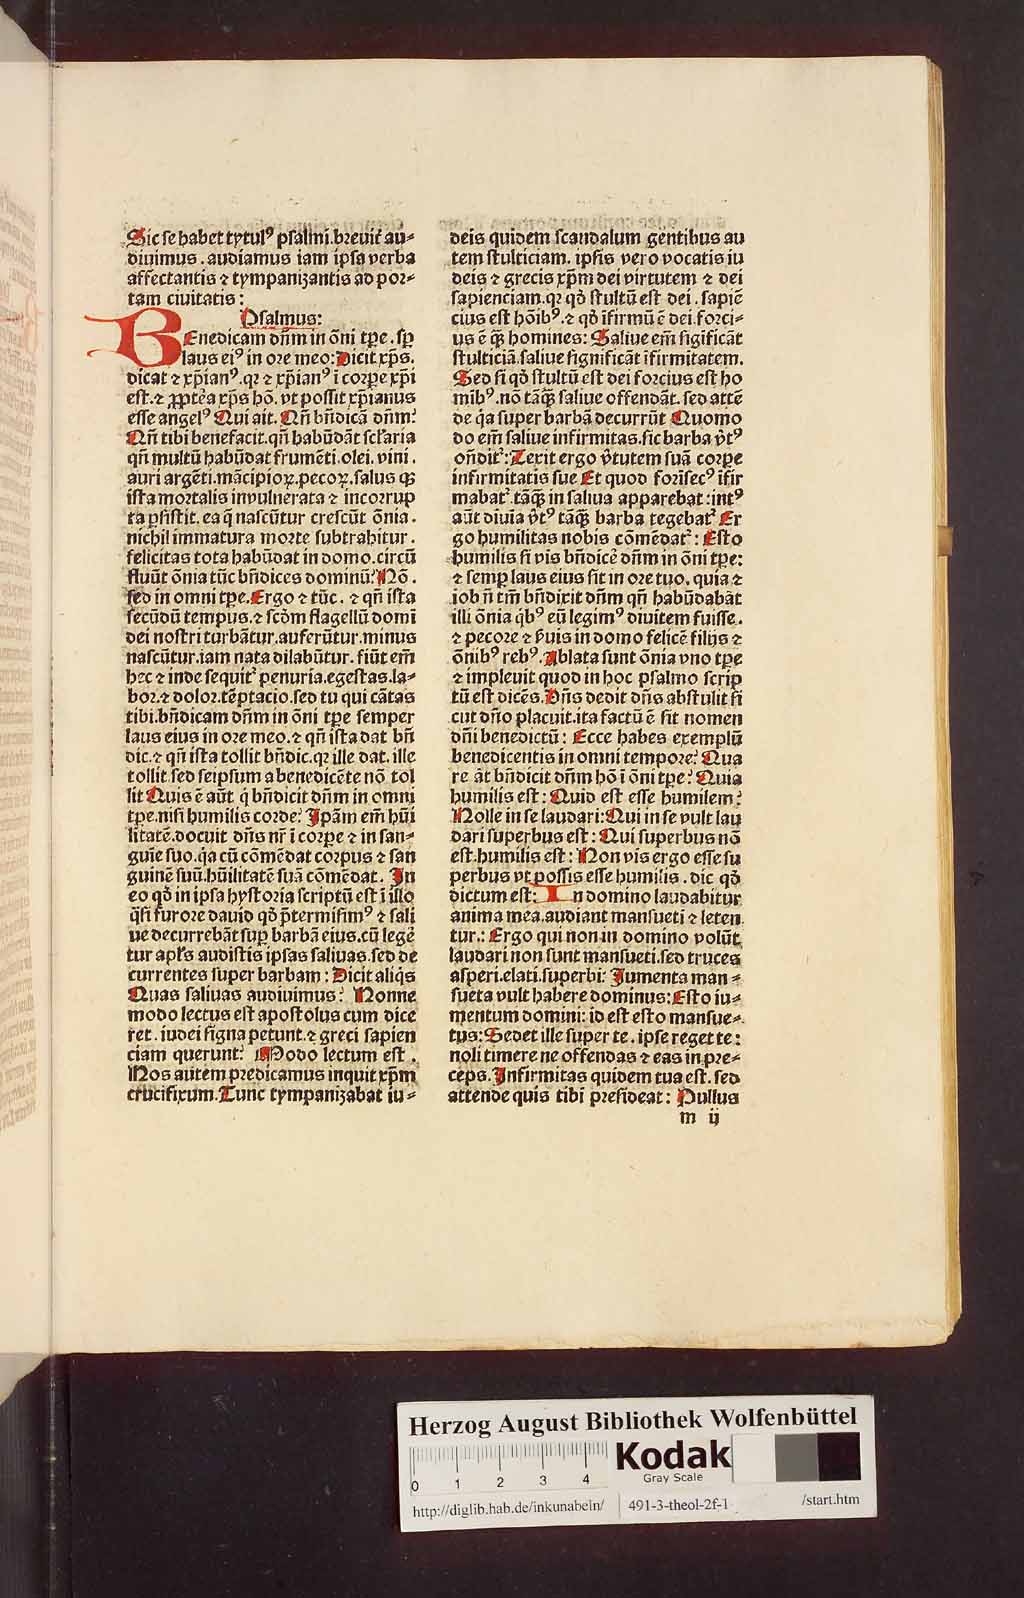 Sic se habet tytulꝰ psalmi.breuit᷑ au⸗
diuimus.audiamus iam ipsa verba
affectantis ⁊ tympanizantis ad por⸗
tam ciuitatis:
Psalmus:
BEnedicam dn̄m in oni tp̄e.sp̱
laus eiꝰ in ore meo:Dicit xp̄s.
dicat ⁊ xp̄ianꝰ.qr ⁊ xp̄ianꝰ ī corpe xp̄i
est.⁊ ꝓptēa xp̄s hō.vt possit xp̄ianus
esse angelꝰ Qui ait.Qn̄ bn̄dicā dn̄m?
Qn̄ tibi benefacit.qn̄ habūdāt sclaria
qn̄ multū habūdat frumēti.olei.vini.
auri argēti.mācipioꝝ.pecoꝝ.salus qꝫ
ista mortalis inuulnerata ⁊ incorrup
ta ꝑsistit.ea q̄ nascūtur crescūt ōnia.
nichil immatura morte subtrahitur.
felicitas tota habūdat in domo.circū
fluūt ōnia tūc bn̄dices dominū?Nō.
sed in omni tp̄e.Ergo ⁊ tūc.⁊ qn̄ ista
secūdū tempus.⁊ scd̄m flagellū domī
dei nostri turbātur.auferūtur.minus
nascūtur.iam nata dilabūtur.fiūt em̄
hec ⁊ inde sequit᷑ penuria.egestas.la⸗
bor.⁊ dolor.tēptacio.sed tu qui cātas
tibi.bn̄dicam dn̄m in ōni tp̄e semper
laus eius in ore meo.⁊ qn̄ ista dat bn̄
dic.⁊ qn̄ ista tollit bn̄dic.qr ille dat.ille
tollit.sed seipsum a benedicēte nō tol
lit Quis ē aūt q̇ bn̄dicit dn̄m in omni
tp̄e.nisi humilis corde?Ipam em̄ hūi
litatē.docuit dn̄s nr̄ ī corpe ⁊ in san⸗
guīe suo.q̇a cū cōmēdat corpus ⁊ san
guinē suū.hūilitatē suā cōmēdat.In
eo qd̄ in ipsa hystoria scriptū est ī illo
q̇si furore dauid qd̄ p̄termisimꝰ ⁊ sali
ue decurrebāt sup̱ barbā eius.cū legē
tur apl̄s audistis ipsas saliuas.sed de
currentes super barbam:Dicit aliq̇s
Quas saliuas audiuimus?Nonne
modo lectus est apostolus cum dice
ret.iudei signa petunt.⁊ greci sapien
ciam querunt?Modo lectum est.
Nos autem predicamus inquit xp̄m
crucifixum.Tunc tympanizabat iu⸗
deis quidem scandalum gentibus au
tem stulticiam.ipsis vero vocatis iu
deis ⁊ grecis xp̄m dei virtutem ⁊ dei
sapienciam.qr qd̄ stultū est dei.sapiē
cius est hōibꝰ.⁊ qd̄ īfirmū ē dei.forci⸗
us ē q̄ꝫ homines:Saliue em̄ sigificāt
stulticiā.saliue significāt īfirmitatem.
Sed si qd̄ stultū est dei forcius est ho
mibꝰ.nō tāq̄ꝫ saliue offendāt.sed attē
de q̇a super barbā decurrūt Quomo
do em̄ saliue infirmitas.sic barba v̄tꝰ
on̄dit᷑:Texit ergo v̄tutem suā corpe
infirmitatis sue Et quod forisecꝰ īfir
mabat᷑.tāq̄ꝫ in saliua apparebat:intꝰ
aūt diuīa v̄tꝰ tāq̄ꝫ barba tegebat᷑ Er
go humilitas nobis cōmēdat᷑:Esto
humilis si vis bn̄dicē dn̄m in ōni tp̄e:
⁊ semp̱ laus eius sit in ore tuo.quia ⁊
iob n̄ tm̄ bn̄dixit dn̄m qn̄ habūdabāt
illi ōnia q̇bꝰ eū legimꝰ diuitem fuisse.
⁊ pecore ⁊ s̄uis in domo felicē filijs ⁊
ōnibꝰ rebꝰ.Ablata sunt ōnia vno tp̄e
⁊ impleuit quod in hoc psalmo scrip
tū est dicēs.Dn̄s dedit dn̄s abstulit si
cut dn̄o placuit.ita factū ē sit nomen
dn̄i benedictū:Ecce habes exemplū
benedicentis in omni tempore?Qua
re āt bn̄dicit dn̄m hō ī ōni tp̄e?Quia
humilis est:Quid est esse humilem?
Nolle in se laudari:Qui in se vult lau
dari superbus est:Qui superbus nō
est.humilis est:Non vis ergo esse su
perbus vt possis esse humilis.dic qd̄
dictum est:In domino laudabitur
anima mea.audiant mansueti ⁊ leten
tur.:Ergo qui non in domino volūt
laudari non sunt mansueti.sed truces
asperi.elati.superbi.Iumenta man⸗
sueta vult habere dominus:Esto iu⸗
mentum domini:id est esto mansue⸗
tus:Sedet ille super te.ipse reget te:
noli timere ne offendas ⁊ eas in pre⸗
ceps.Infirmitas quidem tua est.sed
attende quis tibi presideat:Pullus
m ij
Herzog August Bibliothek Wolfenbüttel
0 1 2 3 4
Kodak
Gray Scale
http://diglib.hab.de/inkunabeln/ 491-3-theol-2f-1 /start.htm